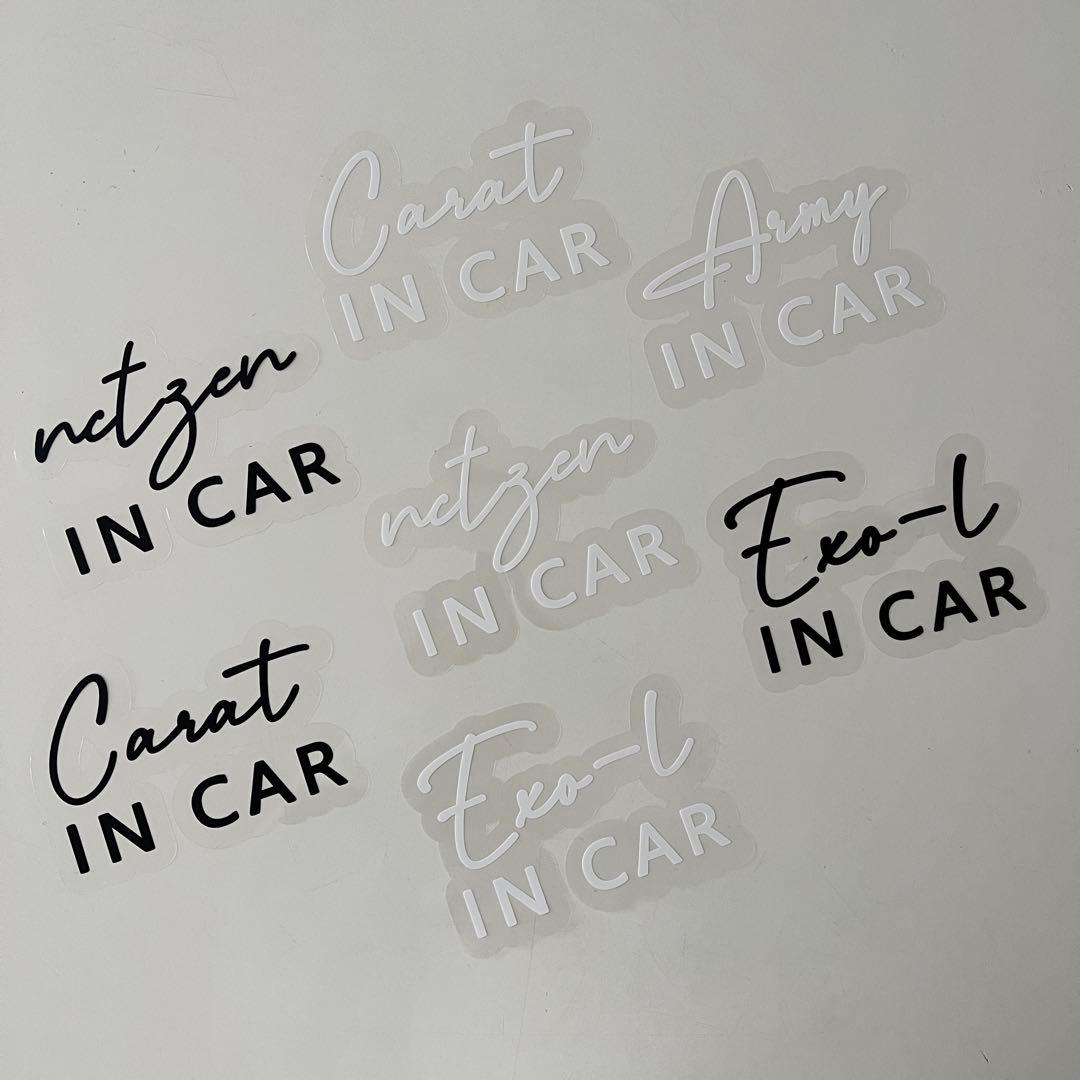 Carat
IN CAR
Army
IN CAR
nctzen
IN CAR
nctzen
IN CAR
Exo-l
IN CAR
Carat
IN CAR
Exo-l
IN CAR